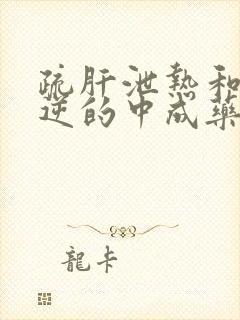 疏肝泄热和
逆的中成藥
龍卡